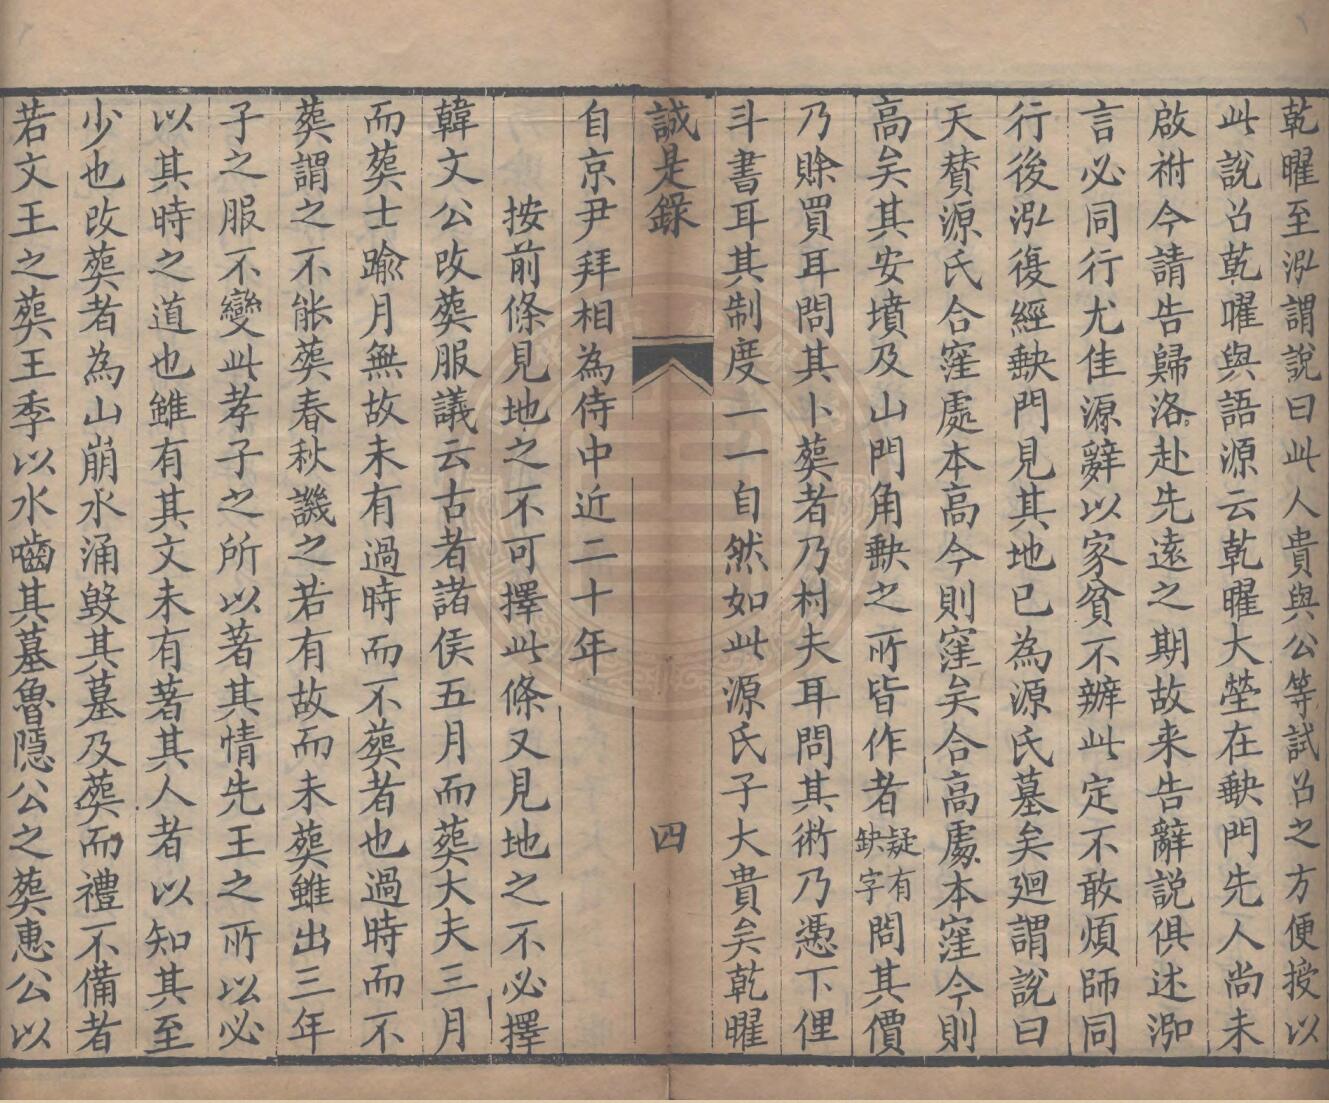 乾曜至泓謂說曰此人貴與公等試召之方便授以
此說召乾曜與語源云乾曜大塋在缺門先人尚未
啟祔今請告歸洛赴先遠之期故来告辭說俱述泓
言必同行尤佳源辭以家貧不辦此定不敢煩師同
行後泓復經缺門見其地已為源氏墓矣廻謂說曰
天賛源氏合窪處本高今則窪矣合高處本窪今則
高矣其安墳及山門角缺之所皆作者疑有缺字問其價
乃賒買耳問其卜葬者乃村夫耳問其術乃憑下俚
斗書耳其制度一一自然如此源氏子大貴矣乾曜
誠是錄 四
自京尹拜相為侍中近二十年
按前條見地之不可擇此條又見地之不必擇
韓文公改葬服議云古者諸侯五月而葬大夫三月
而葬士踰月無故未有過時而不葬者也過時而不
葬謂之不能葬春秋譏之若有故而未葬雖出三年
子之服不變此孝子之所以著其情先王之所以必
以其時之道也雖有其文未有著其人者以知其至
少也改葬者為山崩水涌毀其墓及葬而禮不備者
若文王之葬王季以水嚙其墓魯隱公之葬惠公以